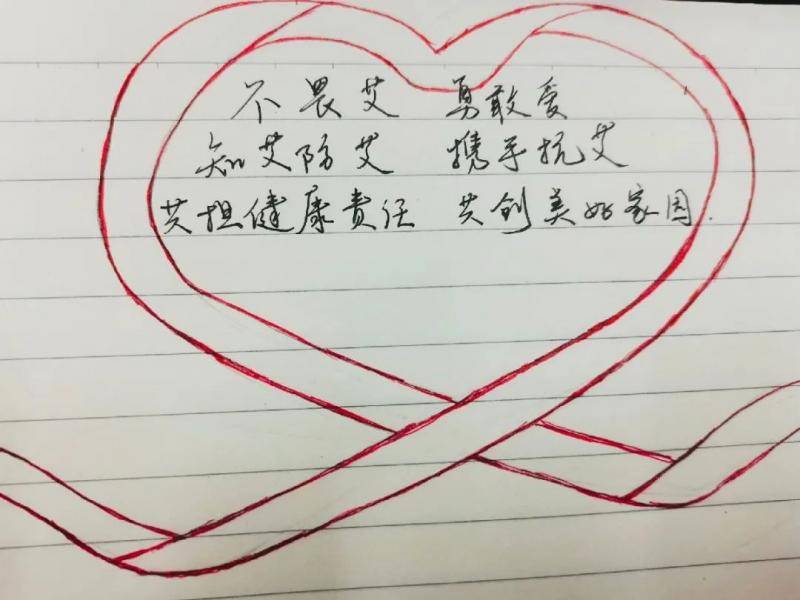 不畏艾 勇敢爱
知艾防艾 携手抗艾
共担健康责任 共创美好家园.